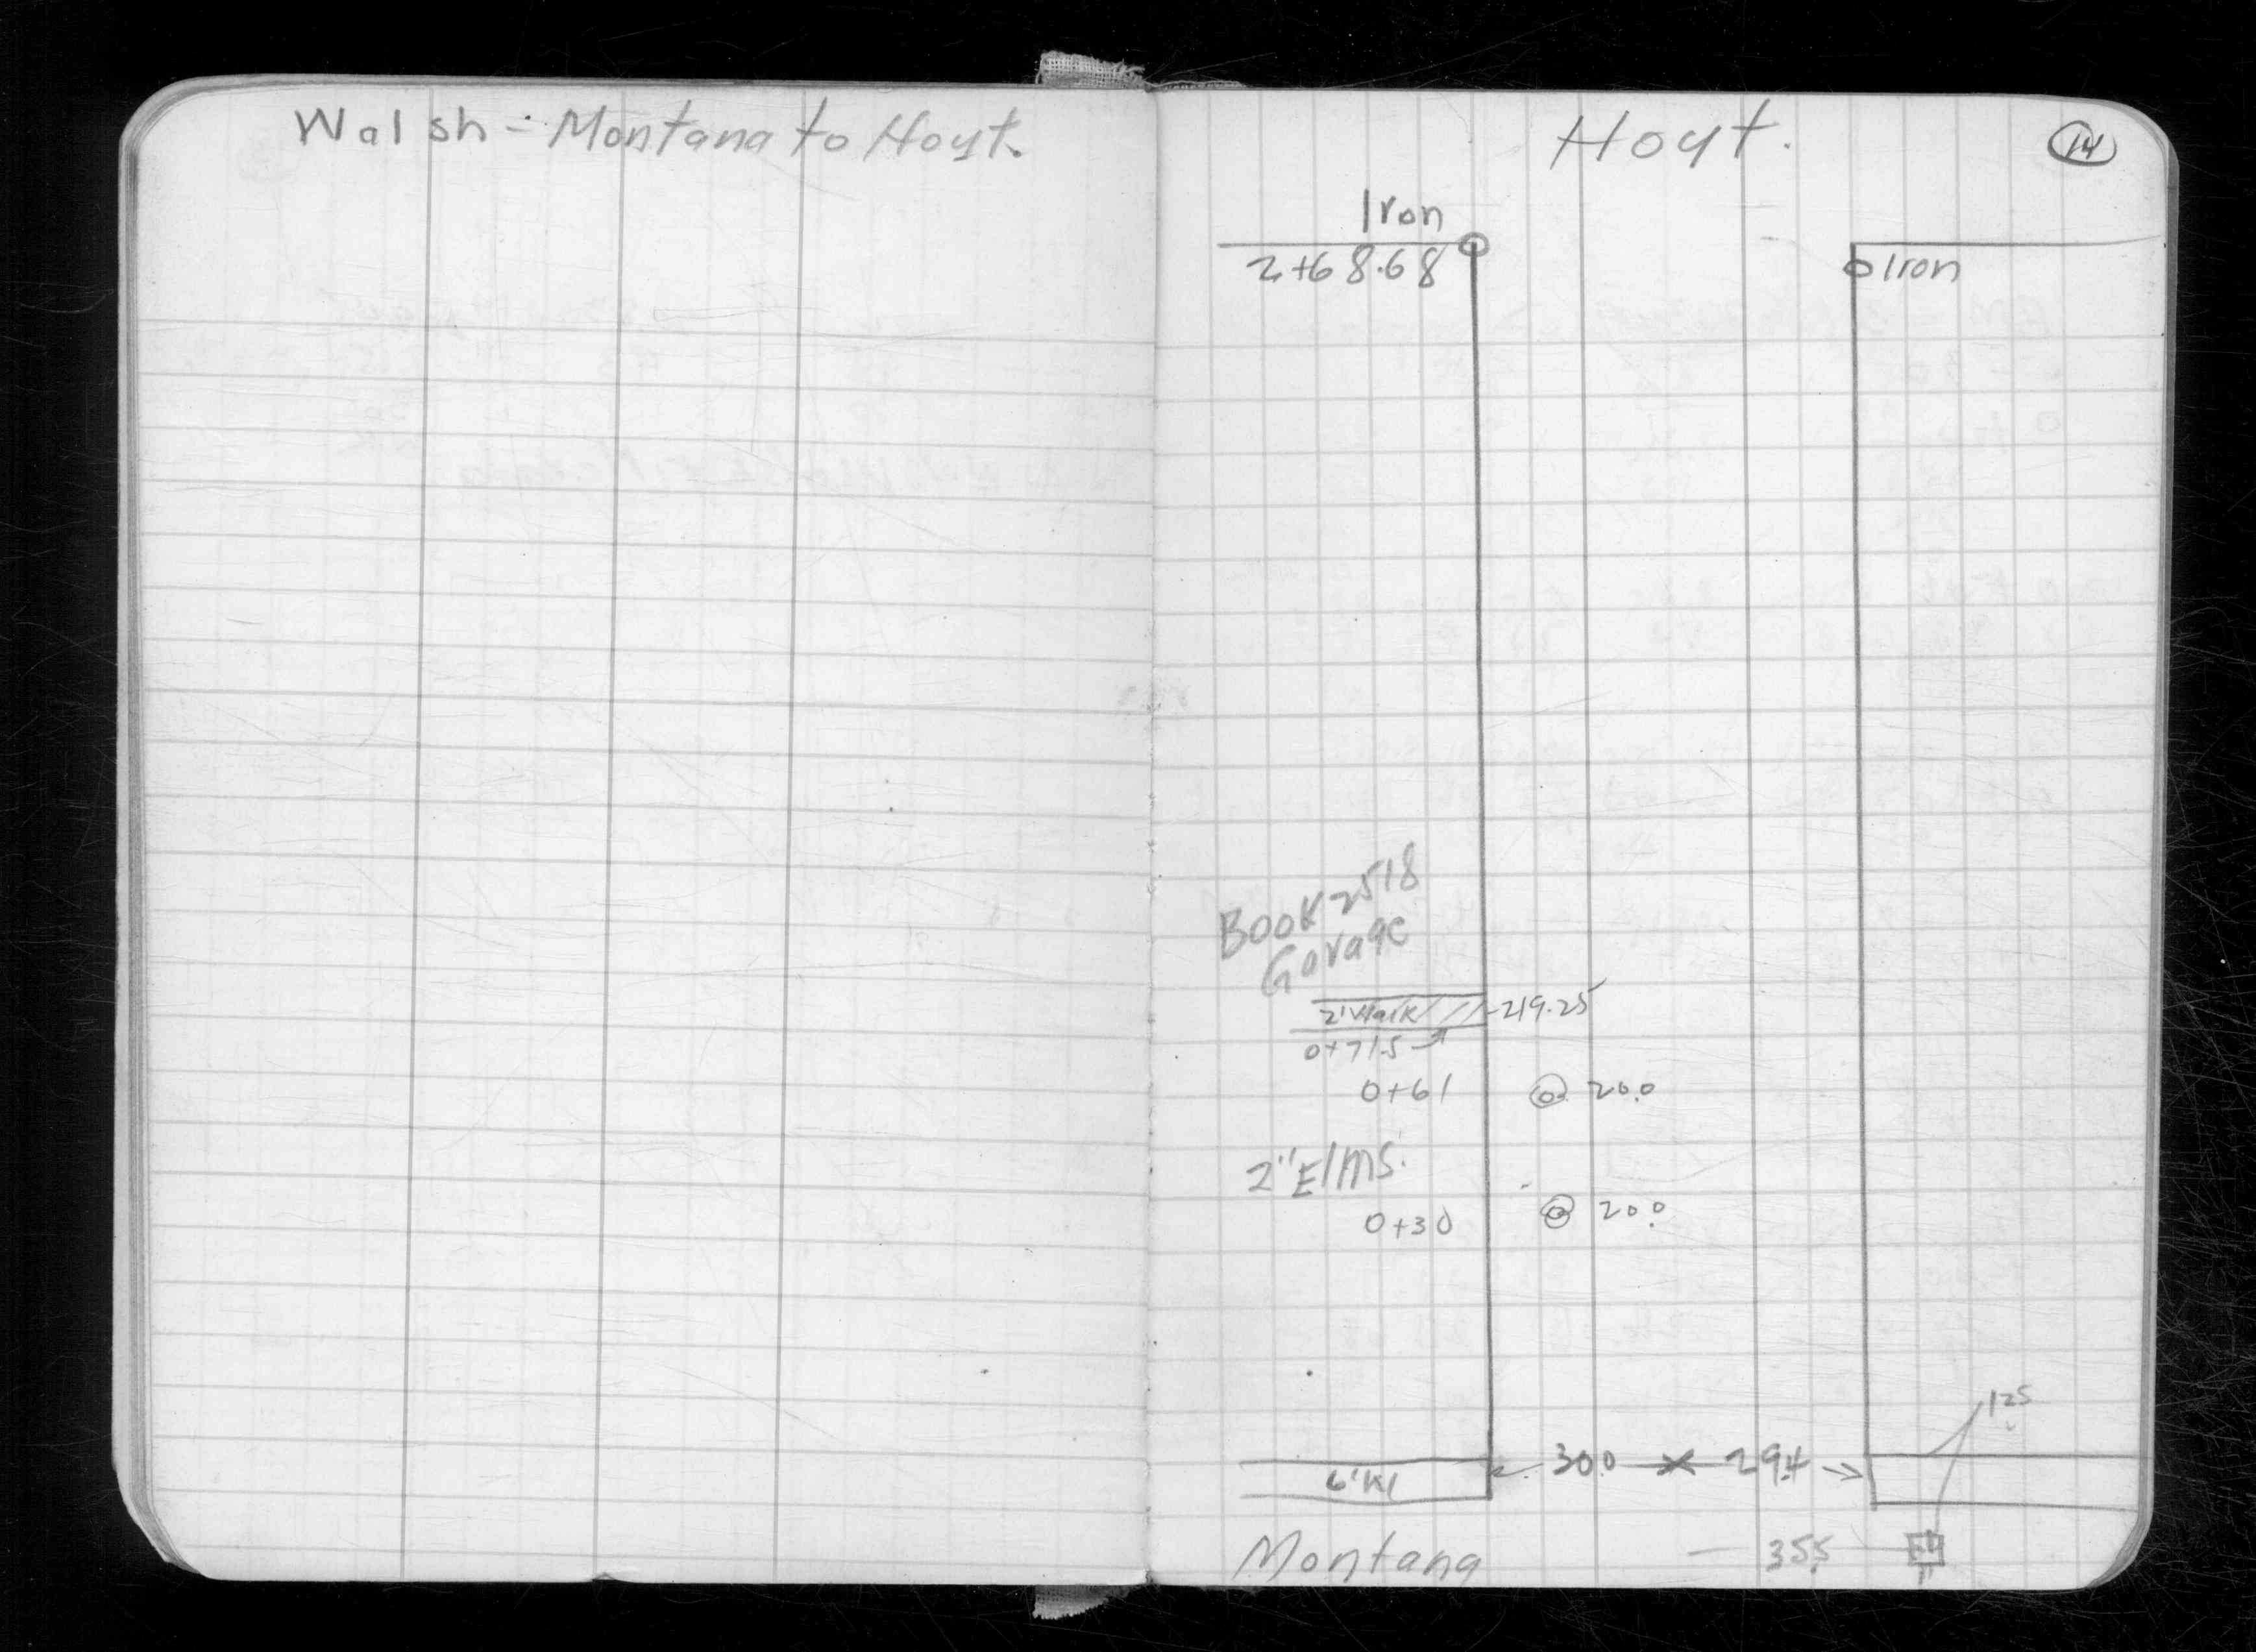 Walsh - Montana to Hoyt.
Hoyt.
14
Iron
2+68.68
Iron
Book 2518
Garage
2' Walk
219.25
0+71.5
0+61
20.0
2" Elms.
0+30
20.0
12.5
30.0
29.4
Montana
35.5